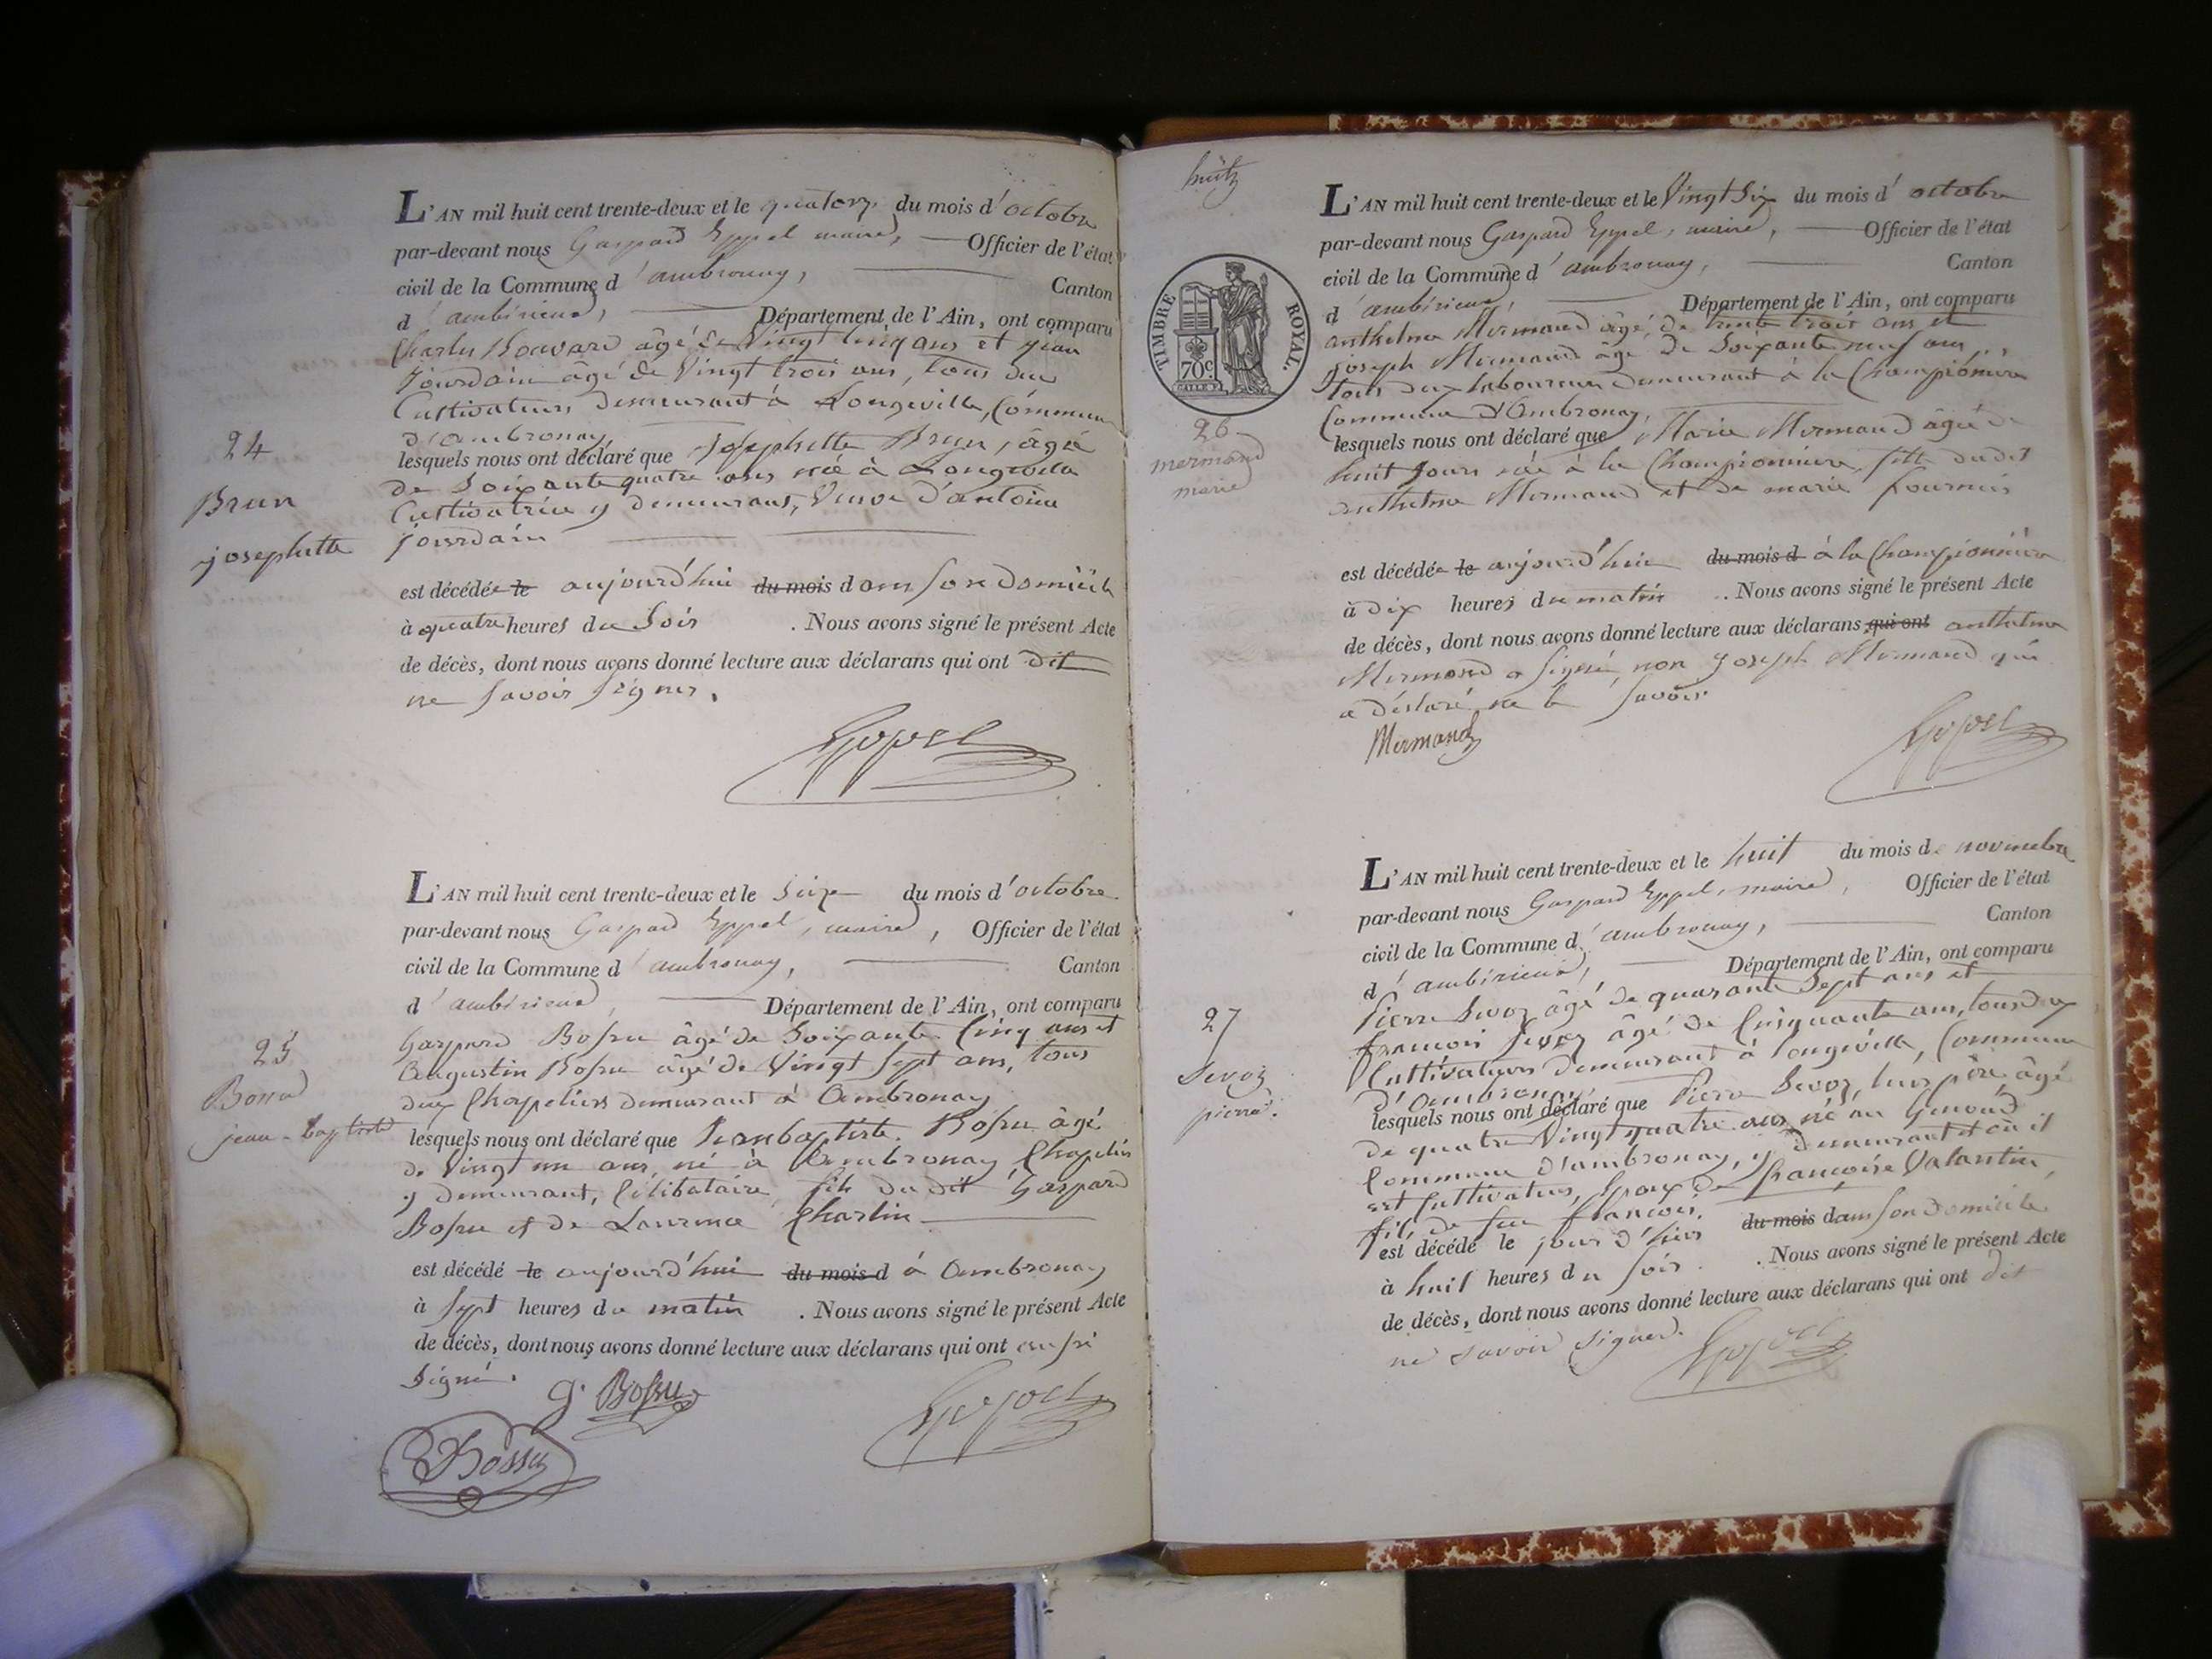 L'AN mil huit cent trente-deux et le quatorze du mois d'octobre
par-devant nous Gaspard Eppel maire, Officier de l'état
civil de la Commune d'ambronay, Canton
d'ambérieux, Département de l'Ain, ont comparu
Charles Bouvard âgé de Vingt Cinq ans et jean
Jourdain âgé de Vingt trois ans, tous deux
Cultivateurs demeurant à Longeville, Commune
d'ambronay
24
Brun
josephette
lesquels nous ont déclaré que Josephette Brun, âgée
de Soixante quatre ans née à Longeville
Cultivatrice y demeurant, Veuve d'antoine
jourdain
est décédée le aujourd'hui du mois dans son domicile
à quatre heures du Soir . Nous avons signé le présent Acte
de décès, dont nous avons donné lecture aux déclarans qui ont dit
ne savoir signer.
Eppel
L'AN mil huit cent trente-deux et le Seize du mois d'octobre
par-devant nous Gaspard Eppel, maire, Officier de l'état
civil de la Commune d'ambronay, Canton
d'ambérieux, Département de l'Ain, ont comparu
Gaspard Bossu âgé de Soixante Cinq ans et
Augustin Bossu âgé de Vingt Sept ans, tous
deux Chapeliers demeurant à Ambronay
25
Bossu
jean-baptiste
lesquels nous ont déclaré que Jean baptiste Bossu âgé
de Vingt un ans, né à Ambronay Chapelier
y demeurant, Célibataire, fils du dit Gaspard
Bossu et de Laurence Charlin
est décédé le aujourd'hui du mois d à Ambronay
à Sept heures du matin . Nous avons signé le présent Acte
de décès, dont nous avons donné lecture aux déclarans qui ont aussi
Signé.
g. Bossu
Bossu
Eppel
huit
TIMBRE ROYAL.
70c
L'AN mil huit cent trente-deux et le Vingt Six du mois d'octobre
par-devant nous Gaspard Eppel, maire, Officier de l'état
civil de la Commune d'ambronay, Canton
d'ambérieux, Département de l'Ain, ont comparu
anthelme Mermand âgé de trente trois ans et
joseph Mermand âgé de Soixante neuf ans,
tous deux laboureurs demeurant à la Championière
Commune d'Ambronay,
26
mermand
marie
lesquels nous ont déclaré que Marie Mermand âgée de
huit Jours née à la Championière, fille dudit
anthelme Mermand et de marie fournier
est décédée le aujourd'hui du mois d à la Championière
à dix heures du matin . Nous avons signé le présent Acte
de décès, dont nous avons donné lecture aux déclarans qui ont anthelme
Mermand a signé, non Joseph Mermand qui
a déclaré ne le Savoir
Mermand
Eppel
L'AN mil huit cent trente-deux et le huit du mois de novembre
par-devant nous Gaspard Eppel, maire, Officier de l'état
civil de la Commune d'ambronay, Canton
d'ambérieux, Département de l'Ain, ont comparu
Pierre Sevoz âgé de quarante Sept ans et
francois Sevoz âgé de Cinquante ans, tous deux
Cultivateurs demeurant à Longeville, Commune
d'Ambronay
27
Sevoz
pierre.
lesquels nous ont déclaré que Pierre Sevoz, leur père âgé
de quatre Vingt quatre ans né au Genoud
Commune d'ambronay, y demeurant et où il
est Cultivateur, Epoux de françoise Valantin,
fils de feu francois.
est décédé le jour d'hier du mois dans son domicile
à huit heures du Soir . Nous avons signé le présent Acte
de décès, dont nous avons donné lecture aux déclarans qui ont dit
ne savoir signer.
Eppel